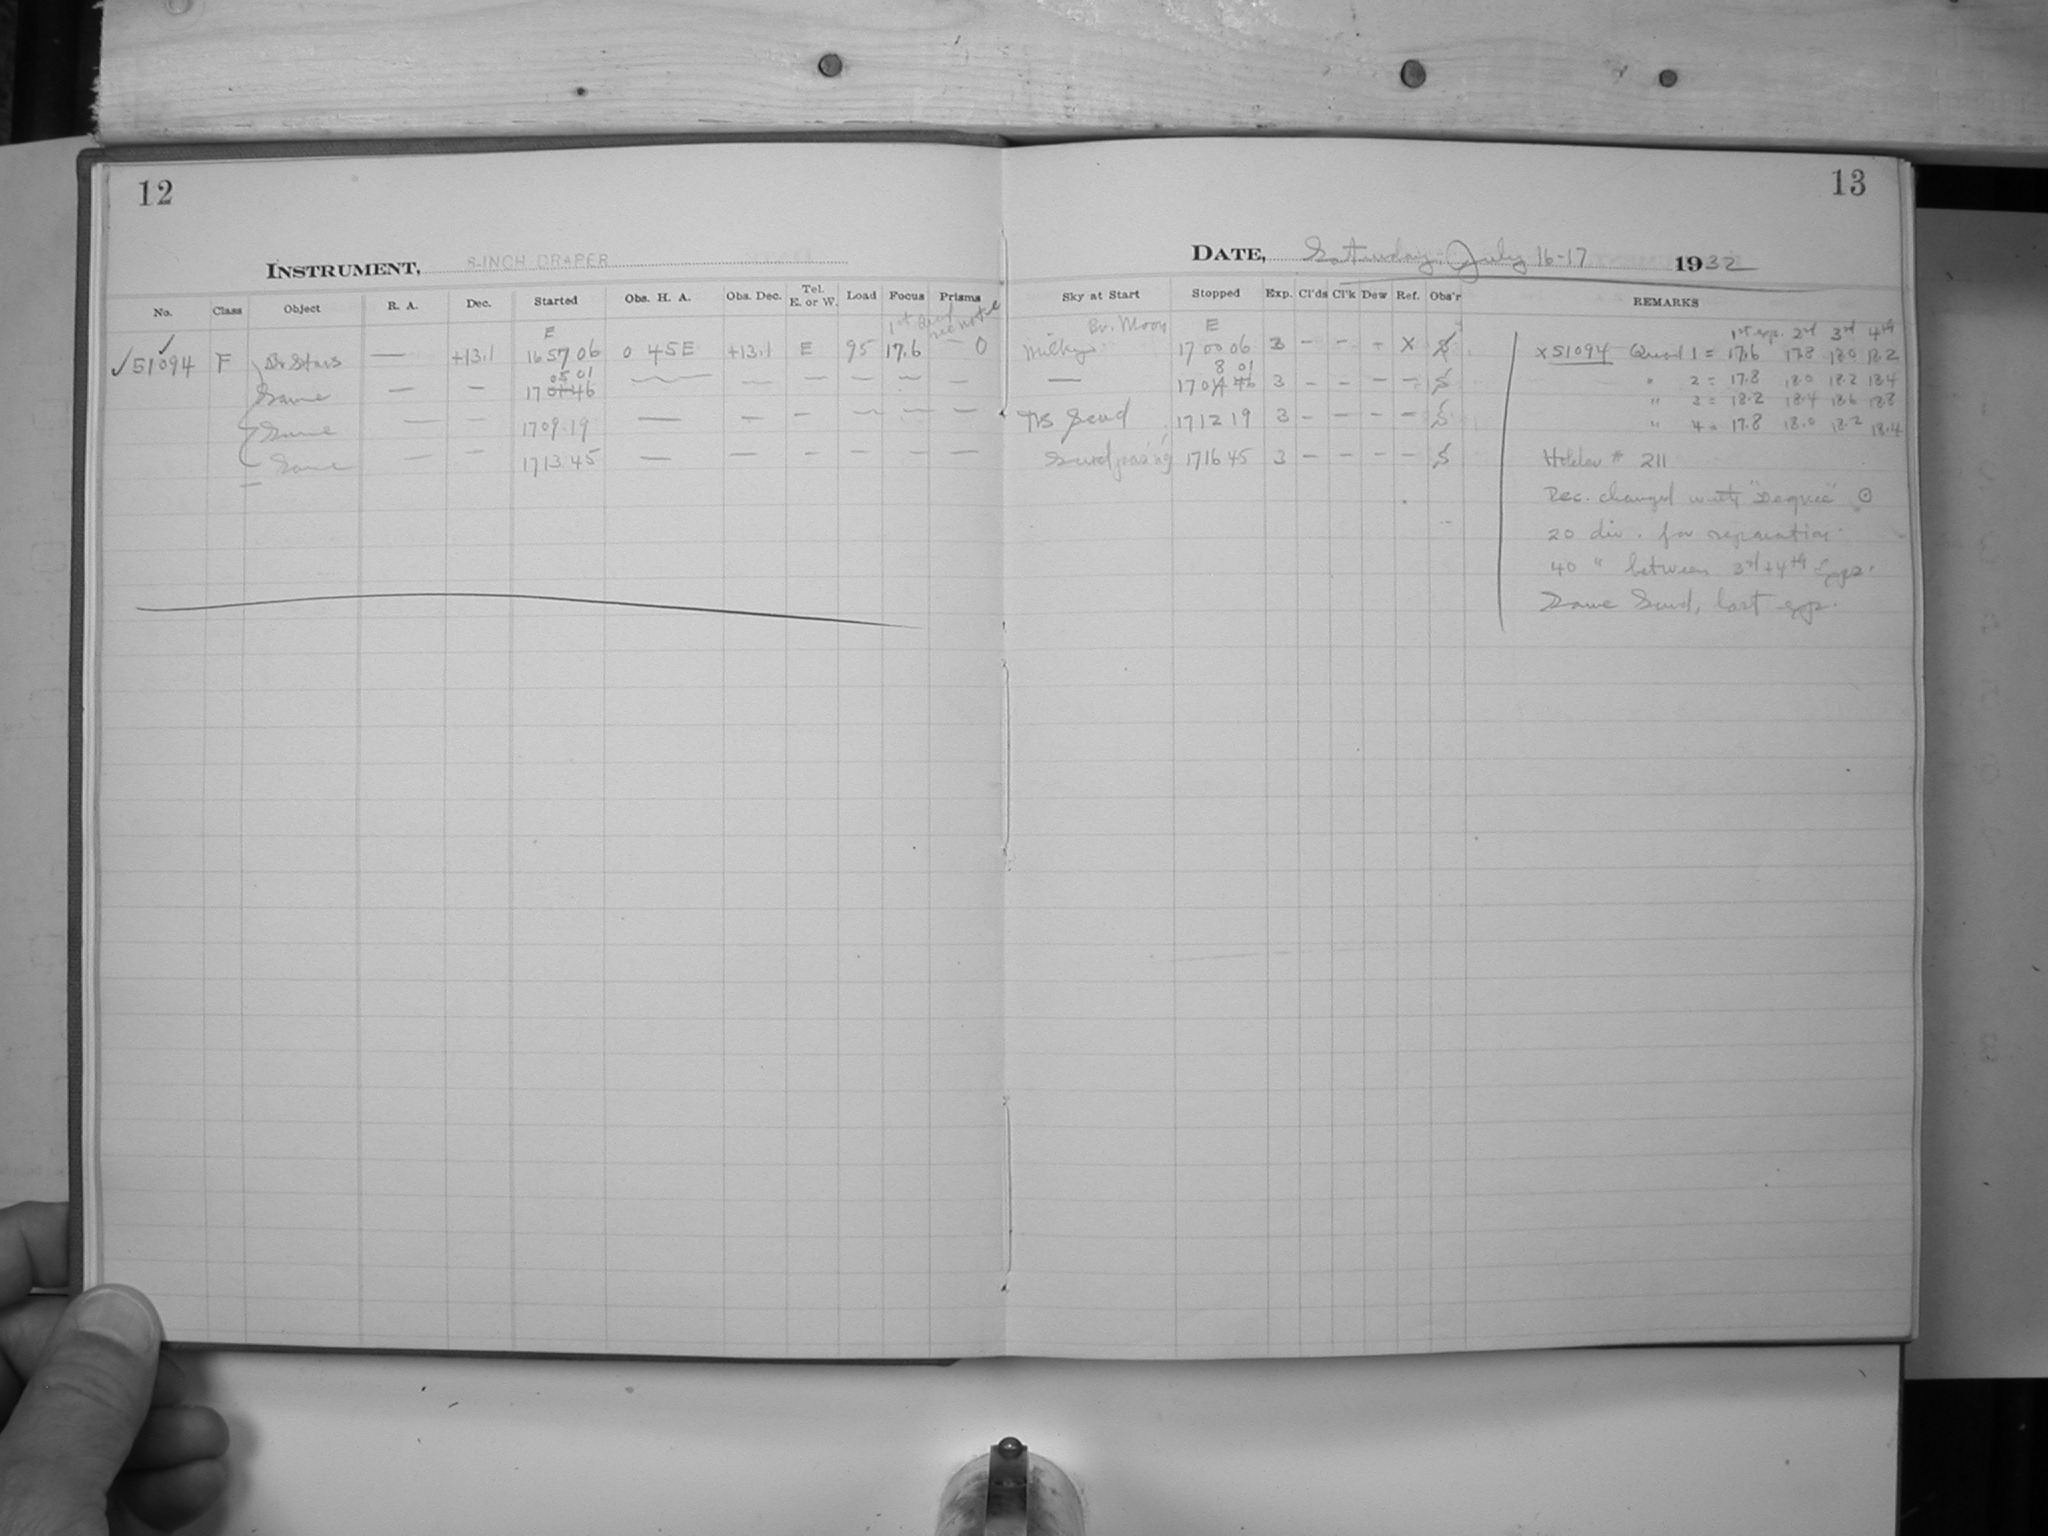 12
INSTRUMENT, 8-INCH DRAPER
No. Class Object R. A. Dec. Started Obs. H. A. Obs. Dec. Tel. E. or W. Load Focus Prisms
1st Quad see note
E
✓51094 F Br Stars — +13.1 16 57 06 0 45E +13.1 E 95 17.6 0
05 01
Same — — 17 01 46 — — — — — —
Same — — 17 09 19 — — — — — —
Same — — 17 13 45 — — — — — —
13
DATE, Saturday July 16-17 1932
Sky at Start Stopped Exp. Cl'ds Cl'k Dew Ref. Obs'r REMARKS
Br. Moon E
Milky 17 00 06 3 - - - X S
8 01
— 17 04 46 3 - - - - S
Scud 17 12 19 3 - - - - S
17 16 45 3 - - - - S
1st exp. 2nd 3rd 4th
x 51094 Quad 1 = 17.6 17.8 18.0 18.2
" 2 = 17.8 18.0 18.2 18.4
" 3 = 18.2 18.4 18.6 18.8
" 4 = 17.8 18.0 18.2 18.4
Holder # 211
Dec. changed with "Degree" ⊙
20 div. for separation.
40 " between 3rd + 4th exps.
Some Scud, last exp.